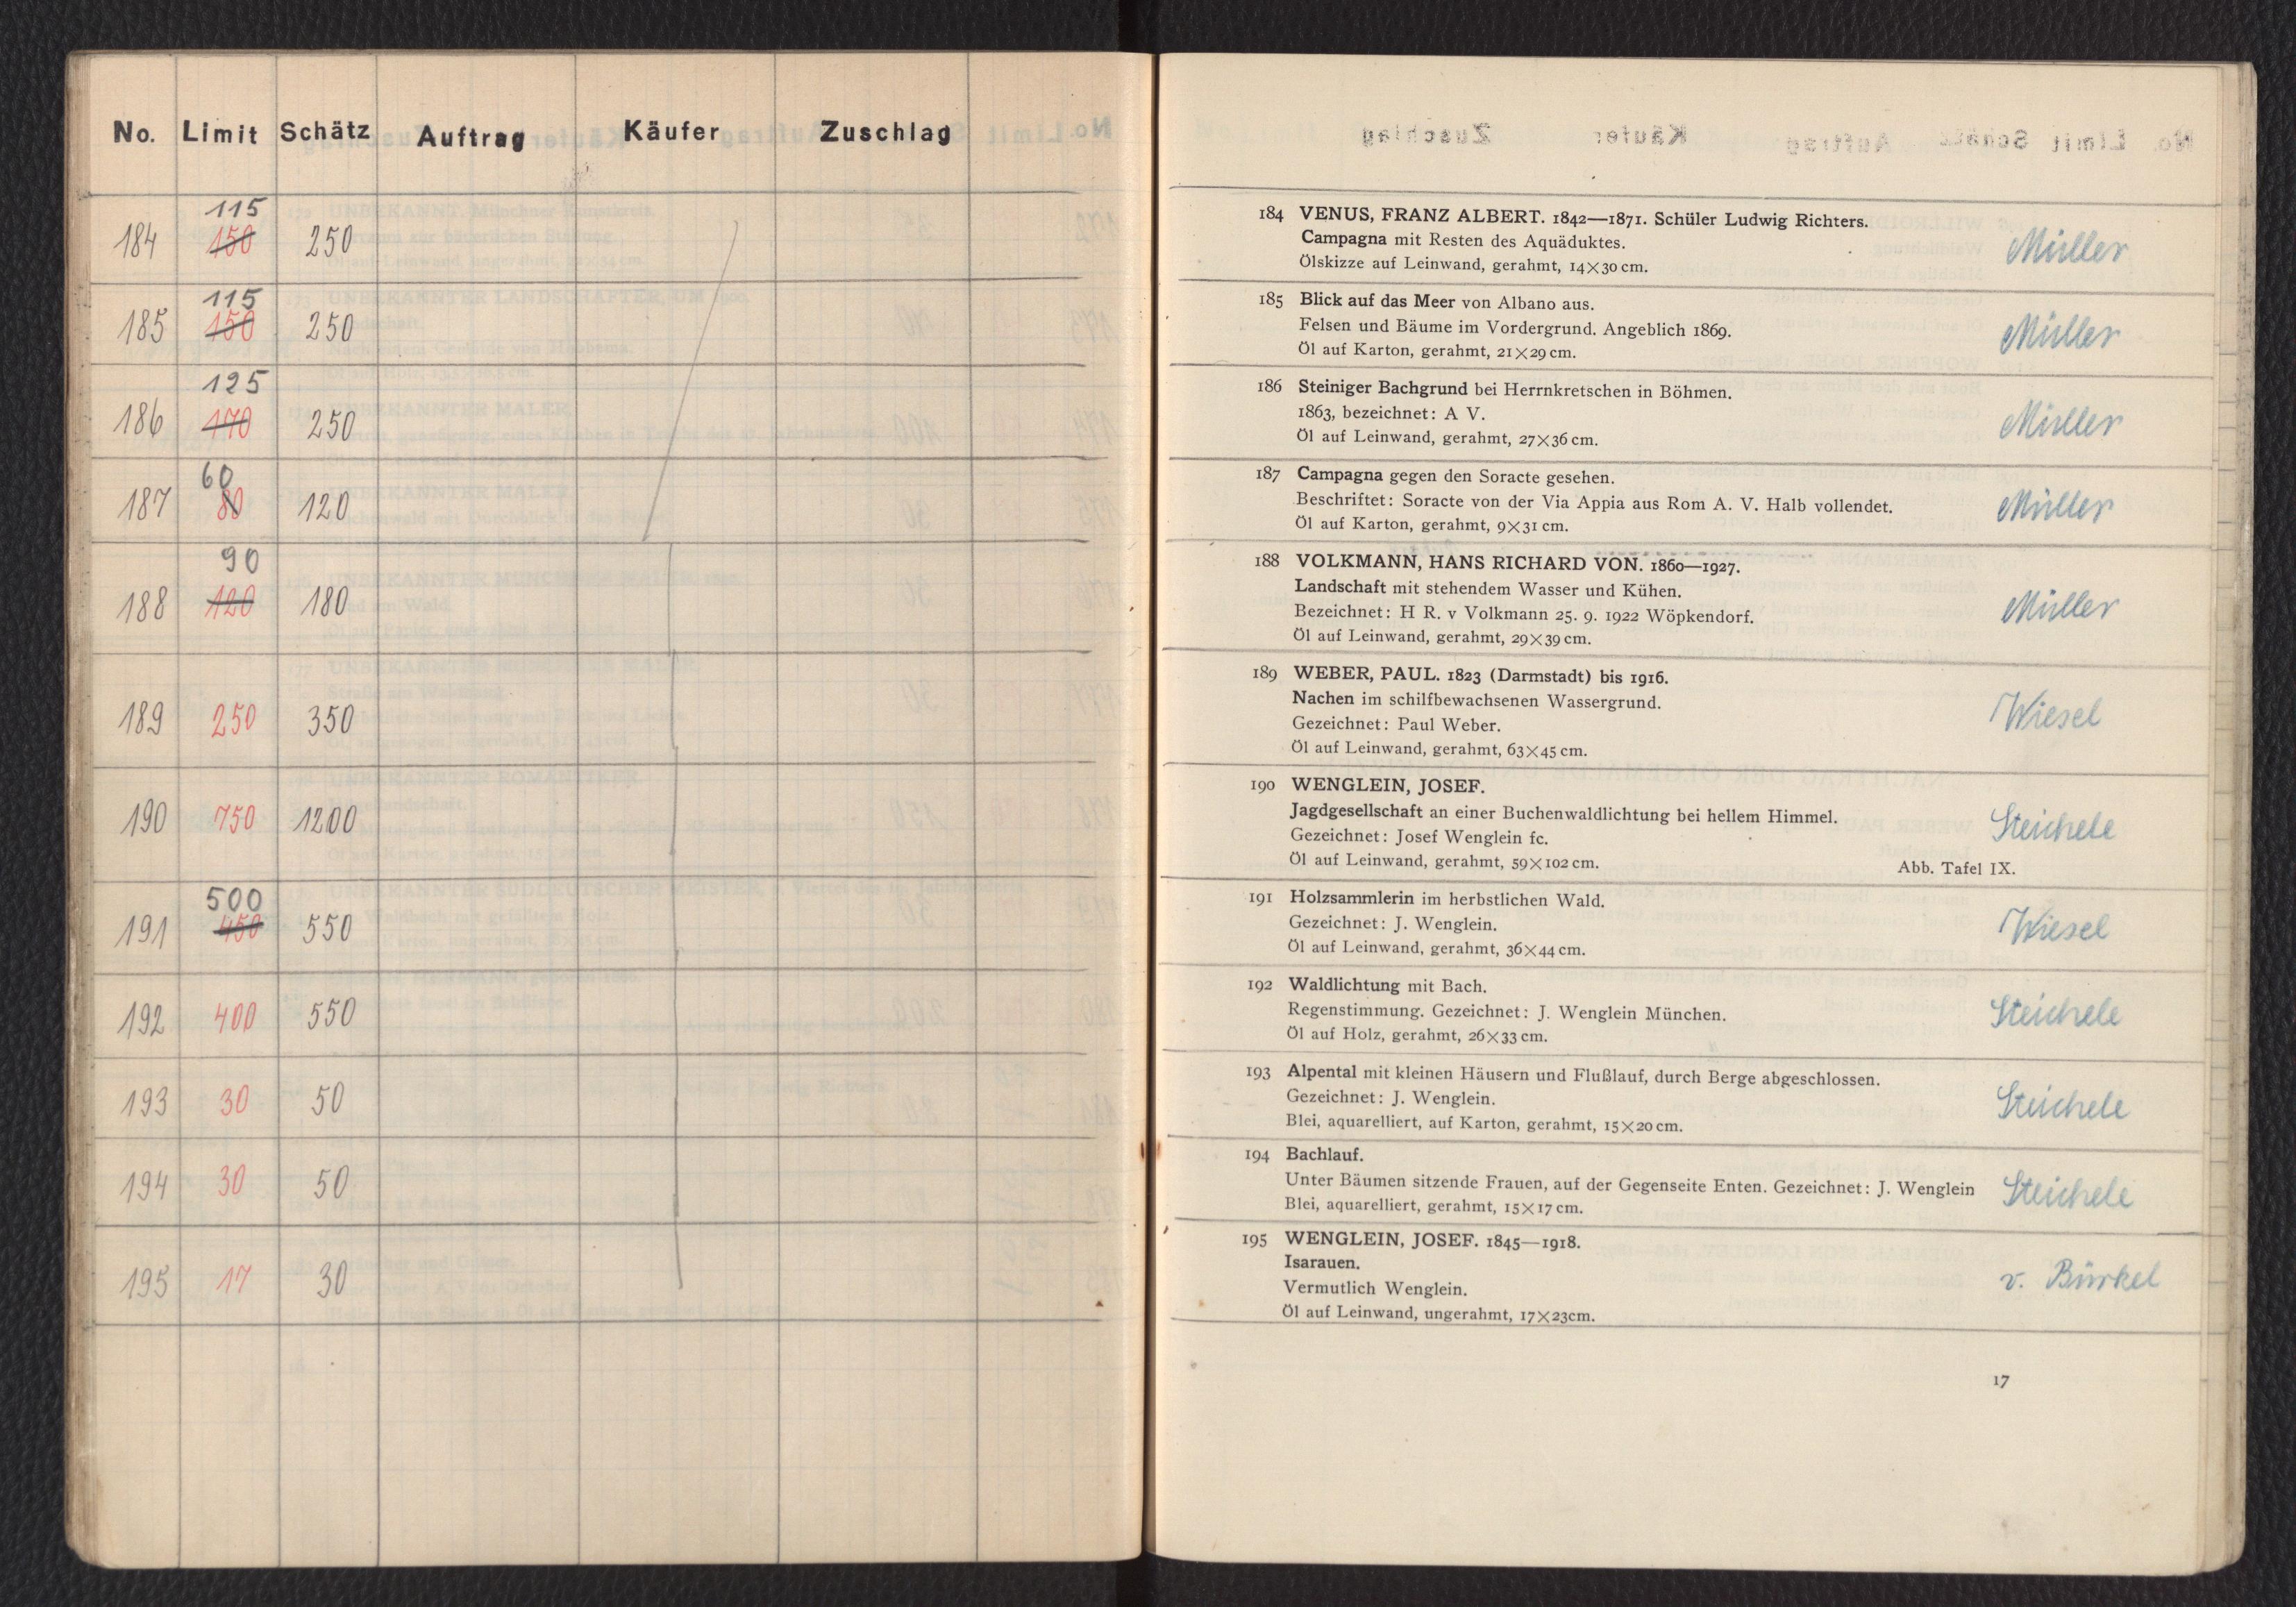 No. Limit Schätz Auftrag Käufer Zuschlag
115
184 150 250
115
185 150 250
125
186 170 250
60
187 80 120
90
188 120 180
189 250 350
190 750 1200
500
191 450 550
192 400 550
193 30 50
194 30 50
195 17 30
184 VENUS, FRANZ ALBERT. 1842—1871. Schüler Ludwig Richters.
Campagna mit Resten des Aquäduktes.
Ölskizze auf Leinwand, gerahmt, 14×30 cm.
Müller
185 Blick auf das Meer von Albano aus.
Felsen und Bäume im Vordergrund. Angeblich 1869.
Öl auf Karton, gerahmt, 21×29 cm.
Müller
186 Steiniger Bachgrund bei Herrnkretschen in Böhmen.
1863, bezeichnet: A V.
Öl auf Leinwand, gerahmt, 27×36 cm.
Müller
187 Campagna gegen den Soracte gesehen.
Beschriftet: Soracte von der Via Appia aus Rom A. V. Halb vollendet.
Öl auf Karton, gerahmt, 9×31 cm.
Müller
188 VOLKMANN, HANS RICHARD VON. 1860—1927.
Landschaft mit stehendem Wasser und Kühen.
Bezeichnet: H R. v Volkmann 25. 9. 1922 Wöpkendorf.
Öl auf Leinwand, gerahmt, 29×39 cm.
Müller
189 WEBER, PAUL. 1823 (Darmstadt) bis 1916.
Nachen im schilfbewachsenen Wassergrund.
Gezeichnet: Paul Weber.
Öl auf Leinwand, gerahmt, 63×45 cm.
Wiesel
190 WENGLEIN, JOSEF.
Jagdgesellschaft an einer Buchenwaldlichtung bei hellem Himmel.
Gezeichnet: Josef Wenglein fc.
Öl auf Leinwand, gerahmt, 59×102 cm.
Abb. Tafel IX.
Steichele
191 Holzsammlerin im herbstlichen Wald.
Gezeichnet: J. Wenglein.
Öl auf Leinwand, gerahmt, 36×44 cm.
Wiesel
192 Waldlichtung mit Bach.
Regenstimmung. Gezeichnet: J. Wenglein München.
Öl auf Holz, gerahmt, 26×33 cm.
Steichele
193 Alpental mit kleinen Häusern und Flußlauf, durch Berge abgeschlossen.
Gezeichnet: J. Wenglein.
Blei, aquarelliert, auf Karton, gerahmt, 15×20 cm.
Steichele
194 Bachlauf.
Unter Bäumen sitzende Frauen, auf der Gegenseite Enten. Gezeichnet: J. Wenglein
Blei, aquarelliert, gerahmt, 15×17 cm.
Steichele
195 WENGLEIN, JOSEF. 1845—1918.
Isarauen.
Vermutlich Wenglein.
Öl auf Leinwand, ungerahmt, 17×23cm.
v. Bürkel
17